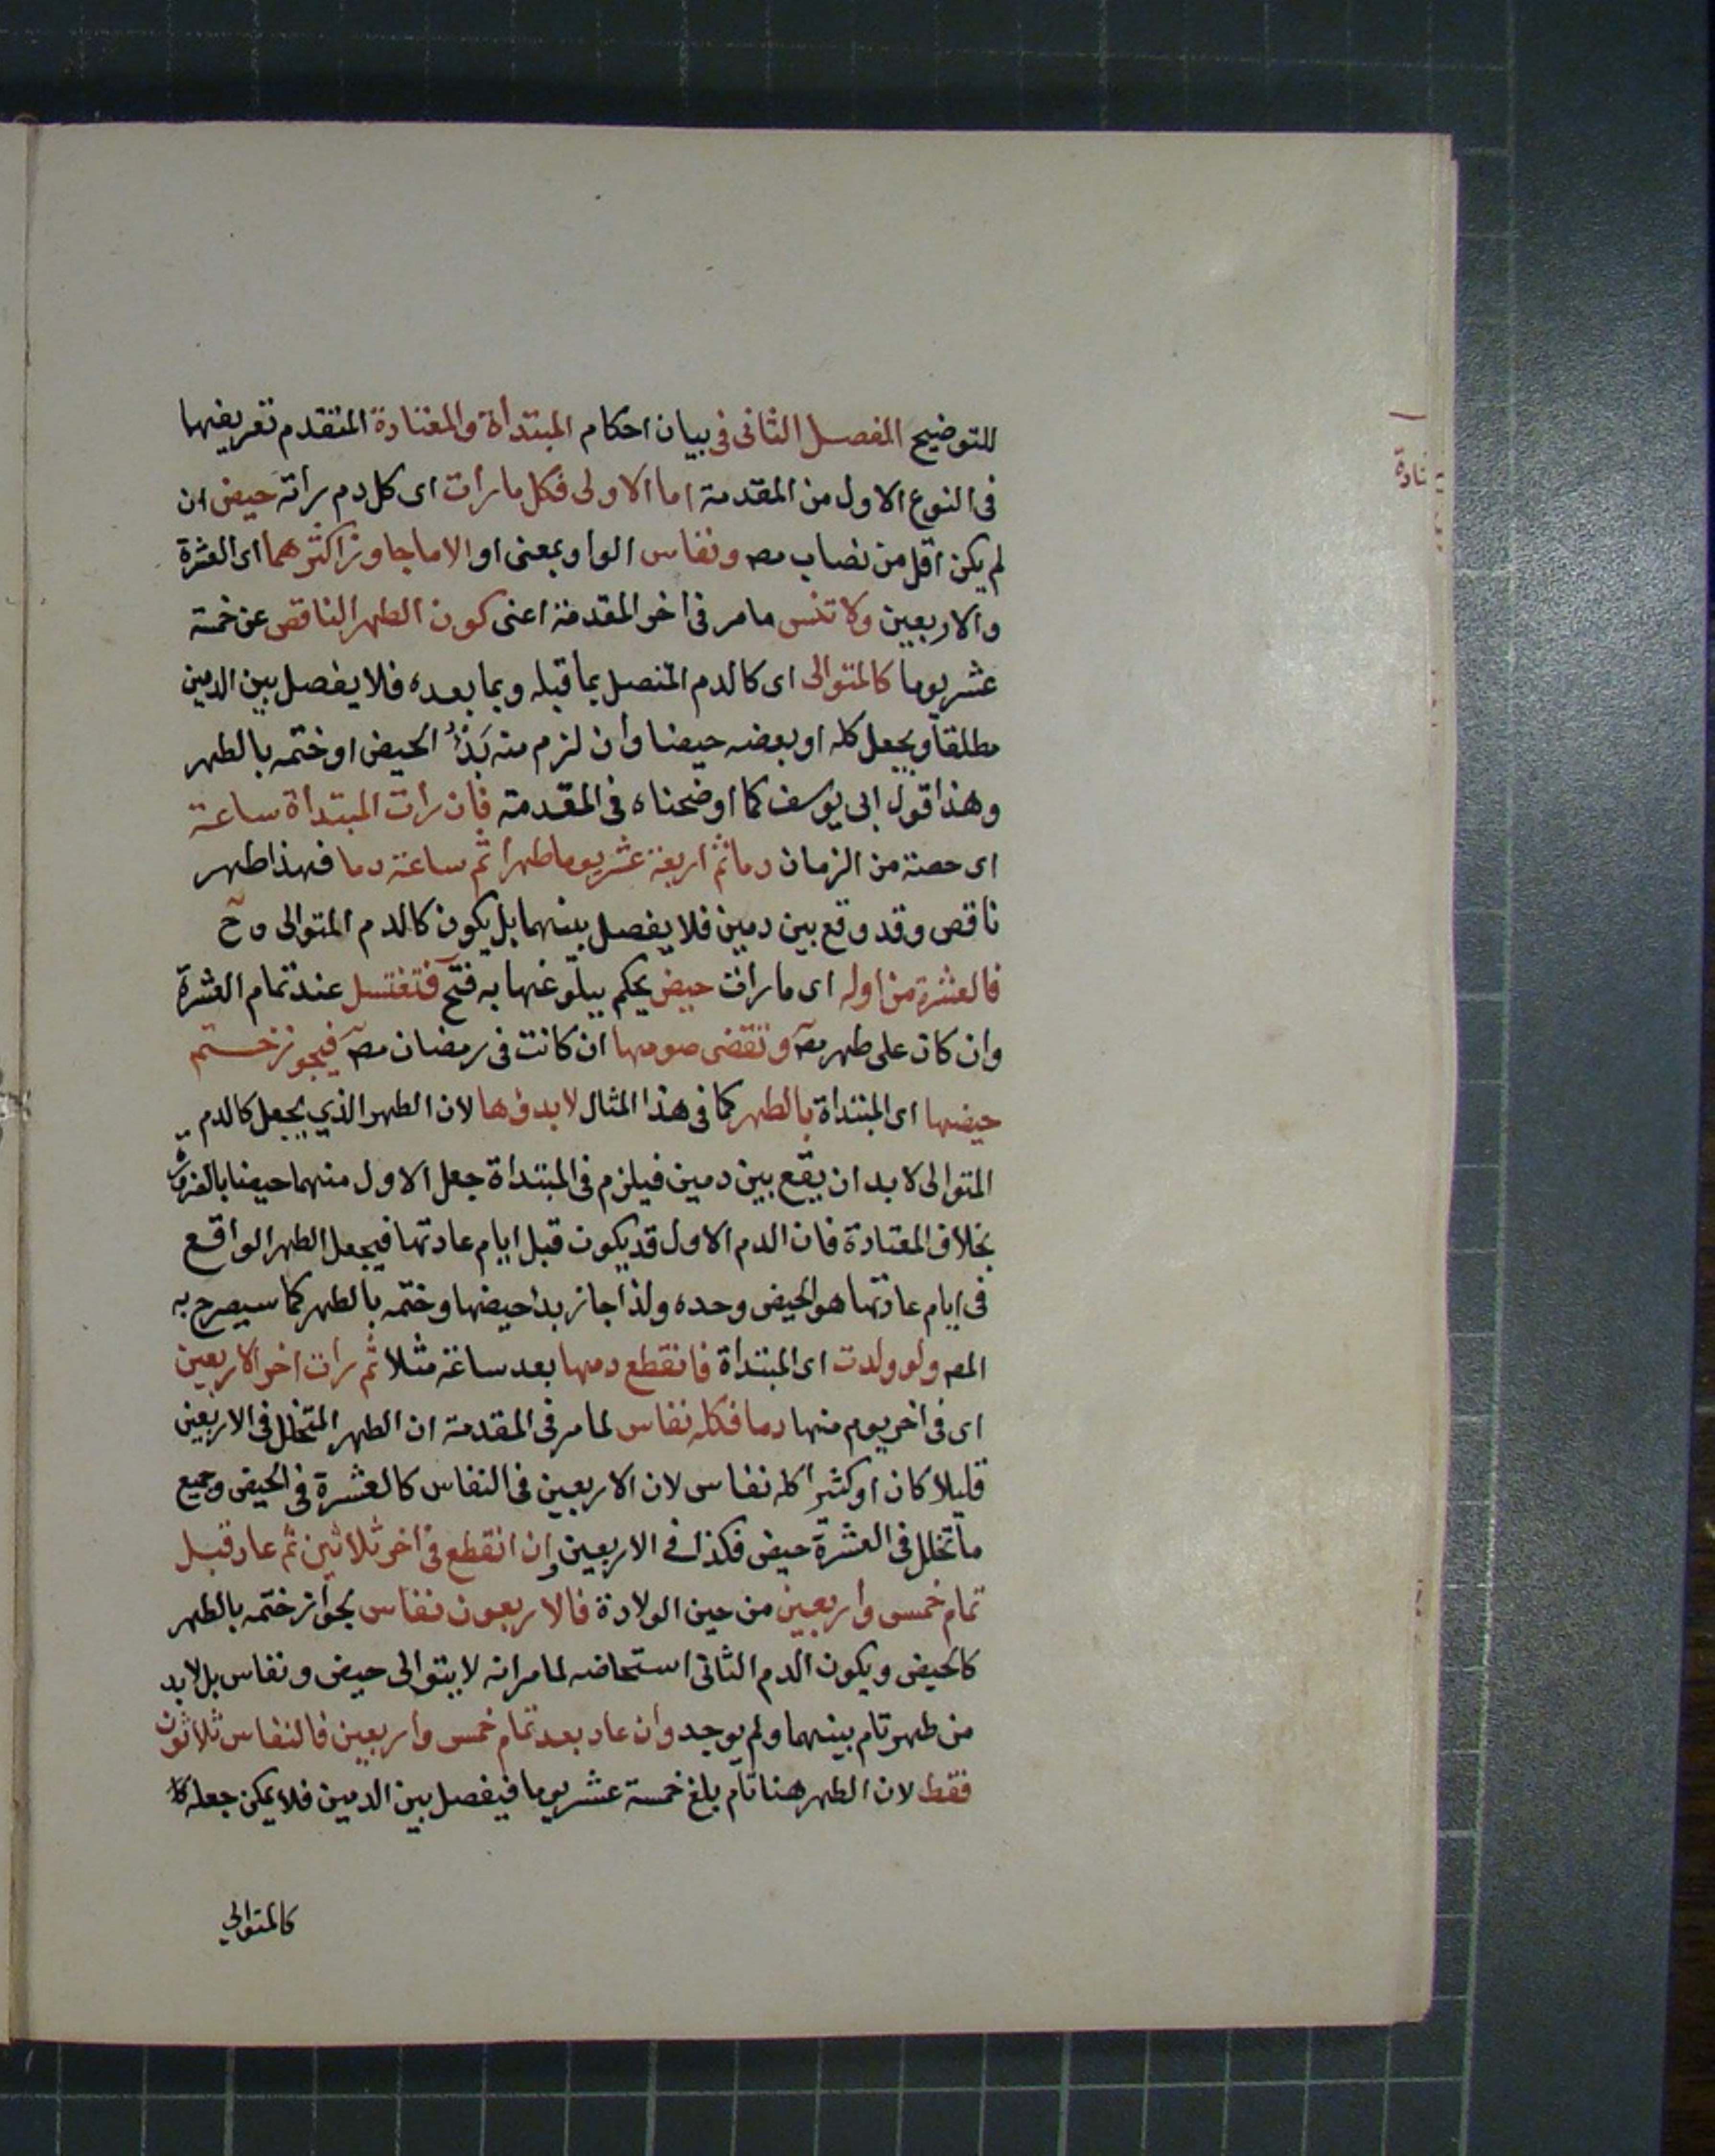 للتوضيح الفصل الثانى فى بيان احكام المبتدأة والمعتادة المتقدم تعريفها
فى النوع الاول من المقدمة اما الاولى فكل ما رأت اى كل دم رأته حيض ان
لم يكن اقل من نصاب مصـ ونفاس الواو بمعنى او الا ما جاوز اكثرهما اى العشرة
والاربعين ولا تنس ما مر فى اخر المقدمة اعنى كون الطهر الناقص عن خمسة
عشر يوما كالمتوالى اى كالدم المتصل بما قبله وبما بعده فلا يفصل بين الدمين
مطلقا ويجعل كله او بعضه حيضا وان لزم منه بدؤ الحيض او ختمه بالطهر
وهذا قول ابى يوسف كما اوضحناه فى المقدمة فان رأت المبتدأة ساعة
اى حصة من الزمان دما ثم اربعة عشر يوما طهرا ثم ساعة دما فهذا طهر
ناقص وقد وقع بين دمين فلا يفصل بينهما بل يكون كالدم المتوالى وح
فالعشرة من اوله اى ما رأت حيض يحكم ببلوغها به فتح فتغتسل عند تمام العشرة
وان كان على طهر مصـ وتقضى صومها ان كانت فى رمضان مصـ فيجوز ختم
حيضها اى المبتدأة بالطهر كما فى هذا المثال لا بدؤها لان الطهر الذي يجعل كالدم
المتوالى لا بد ان يقع بين دمين فيلزم فى المبتدأة جعل الاول منهما حيضا بالضرورة
بخلاف المعتادة فان الدم الاول قد يكون قبل ايام عادتها فيجعل الطهر الواقع
فى ايام عادتها هو الحيض وحده ولذا جاز بدأ حيضها وختمه بالطهر كما سيصرح به
المصـ ولو ولدت اى المبتدأة فانقطع دمها بعد ساعة مثلا ثم رات اخر الاربعين
اى فى اخر يوم منها دما فكله نفاس لما مر فى المقدمة ان الطهر المتخلل فى الاربعين
قليلا كان او كثيرا كله نفاس لان الاربعين فى النفاس كالعشرة فى الحيض وجميع
ما تخلل فى العشرة حيض فكذا فى الاربعين وإن انقطع فى اخر ثلاثين ثم عاد قبل
تمام خمس وأربعين من حين الولادة فالاربعون نفاس لجواز ختمه بالطهر
كالحيض ويكون الدم الثانى استحاضه لما مر انه لا يتوالى حيض ونفاس بل لا بد
من طهر تام بينهما ولم يوجد وان عاد بعد تمام خمس وأربعين فالنفاس ثلاثون
فقط لان الطهر هنا تام بلغ خمسة عشر يوما فيفصل بين الدمين فلا يمكن جعله
كالمتوالي